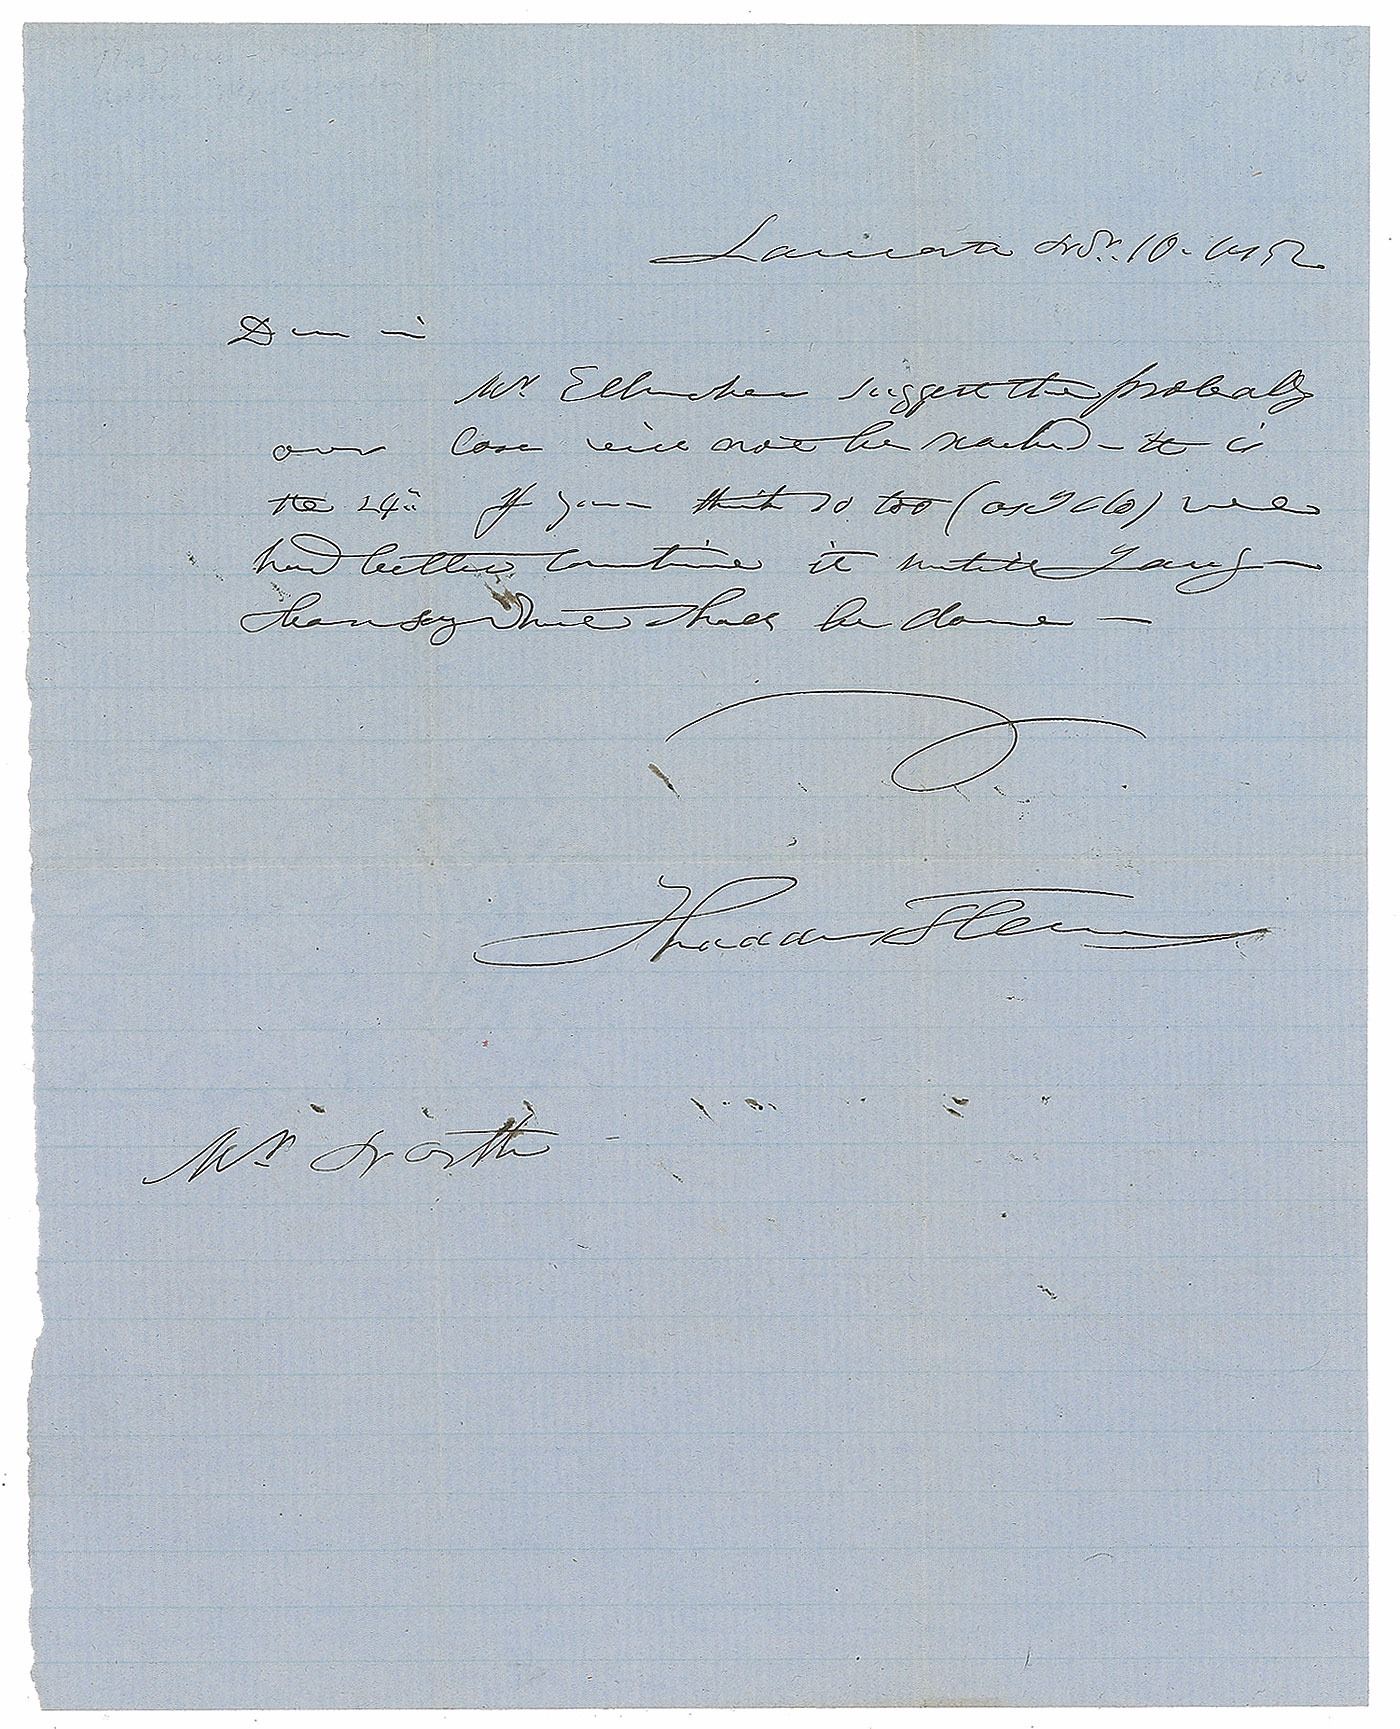 Lancaster Nov. 10. 1852
Dear Sir
Mr. Ellmaker suggests that probably
our case will not be reached – It is
the 24th If you think so too (as I do) we
had better continue it until
say what shall be done –
Thaddeus Stevens
Mr North